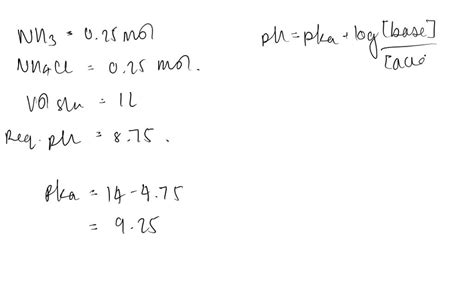 NH3 = 0.25 mol
NH4Cl = 0.25 mol.
Vol sln = 1L
Req. pH = 8.75.
pka = 14 - 4.75
= 9.25
pH = pka + log [base]
[acid